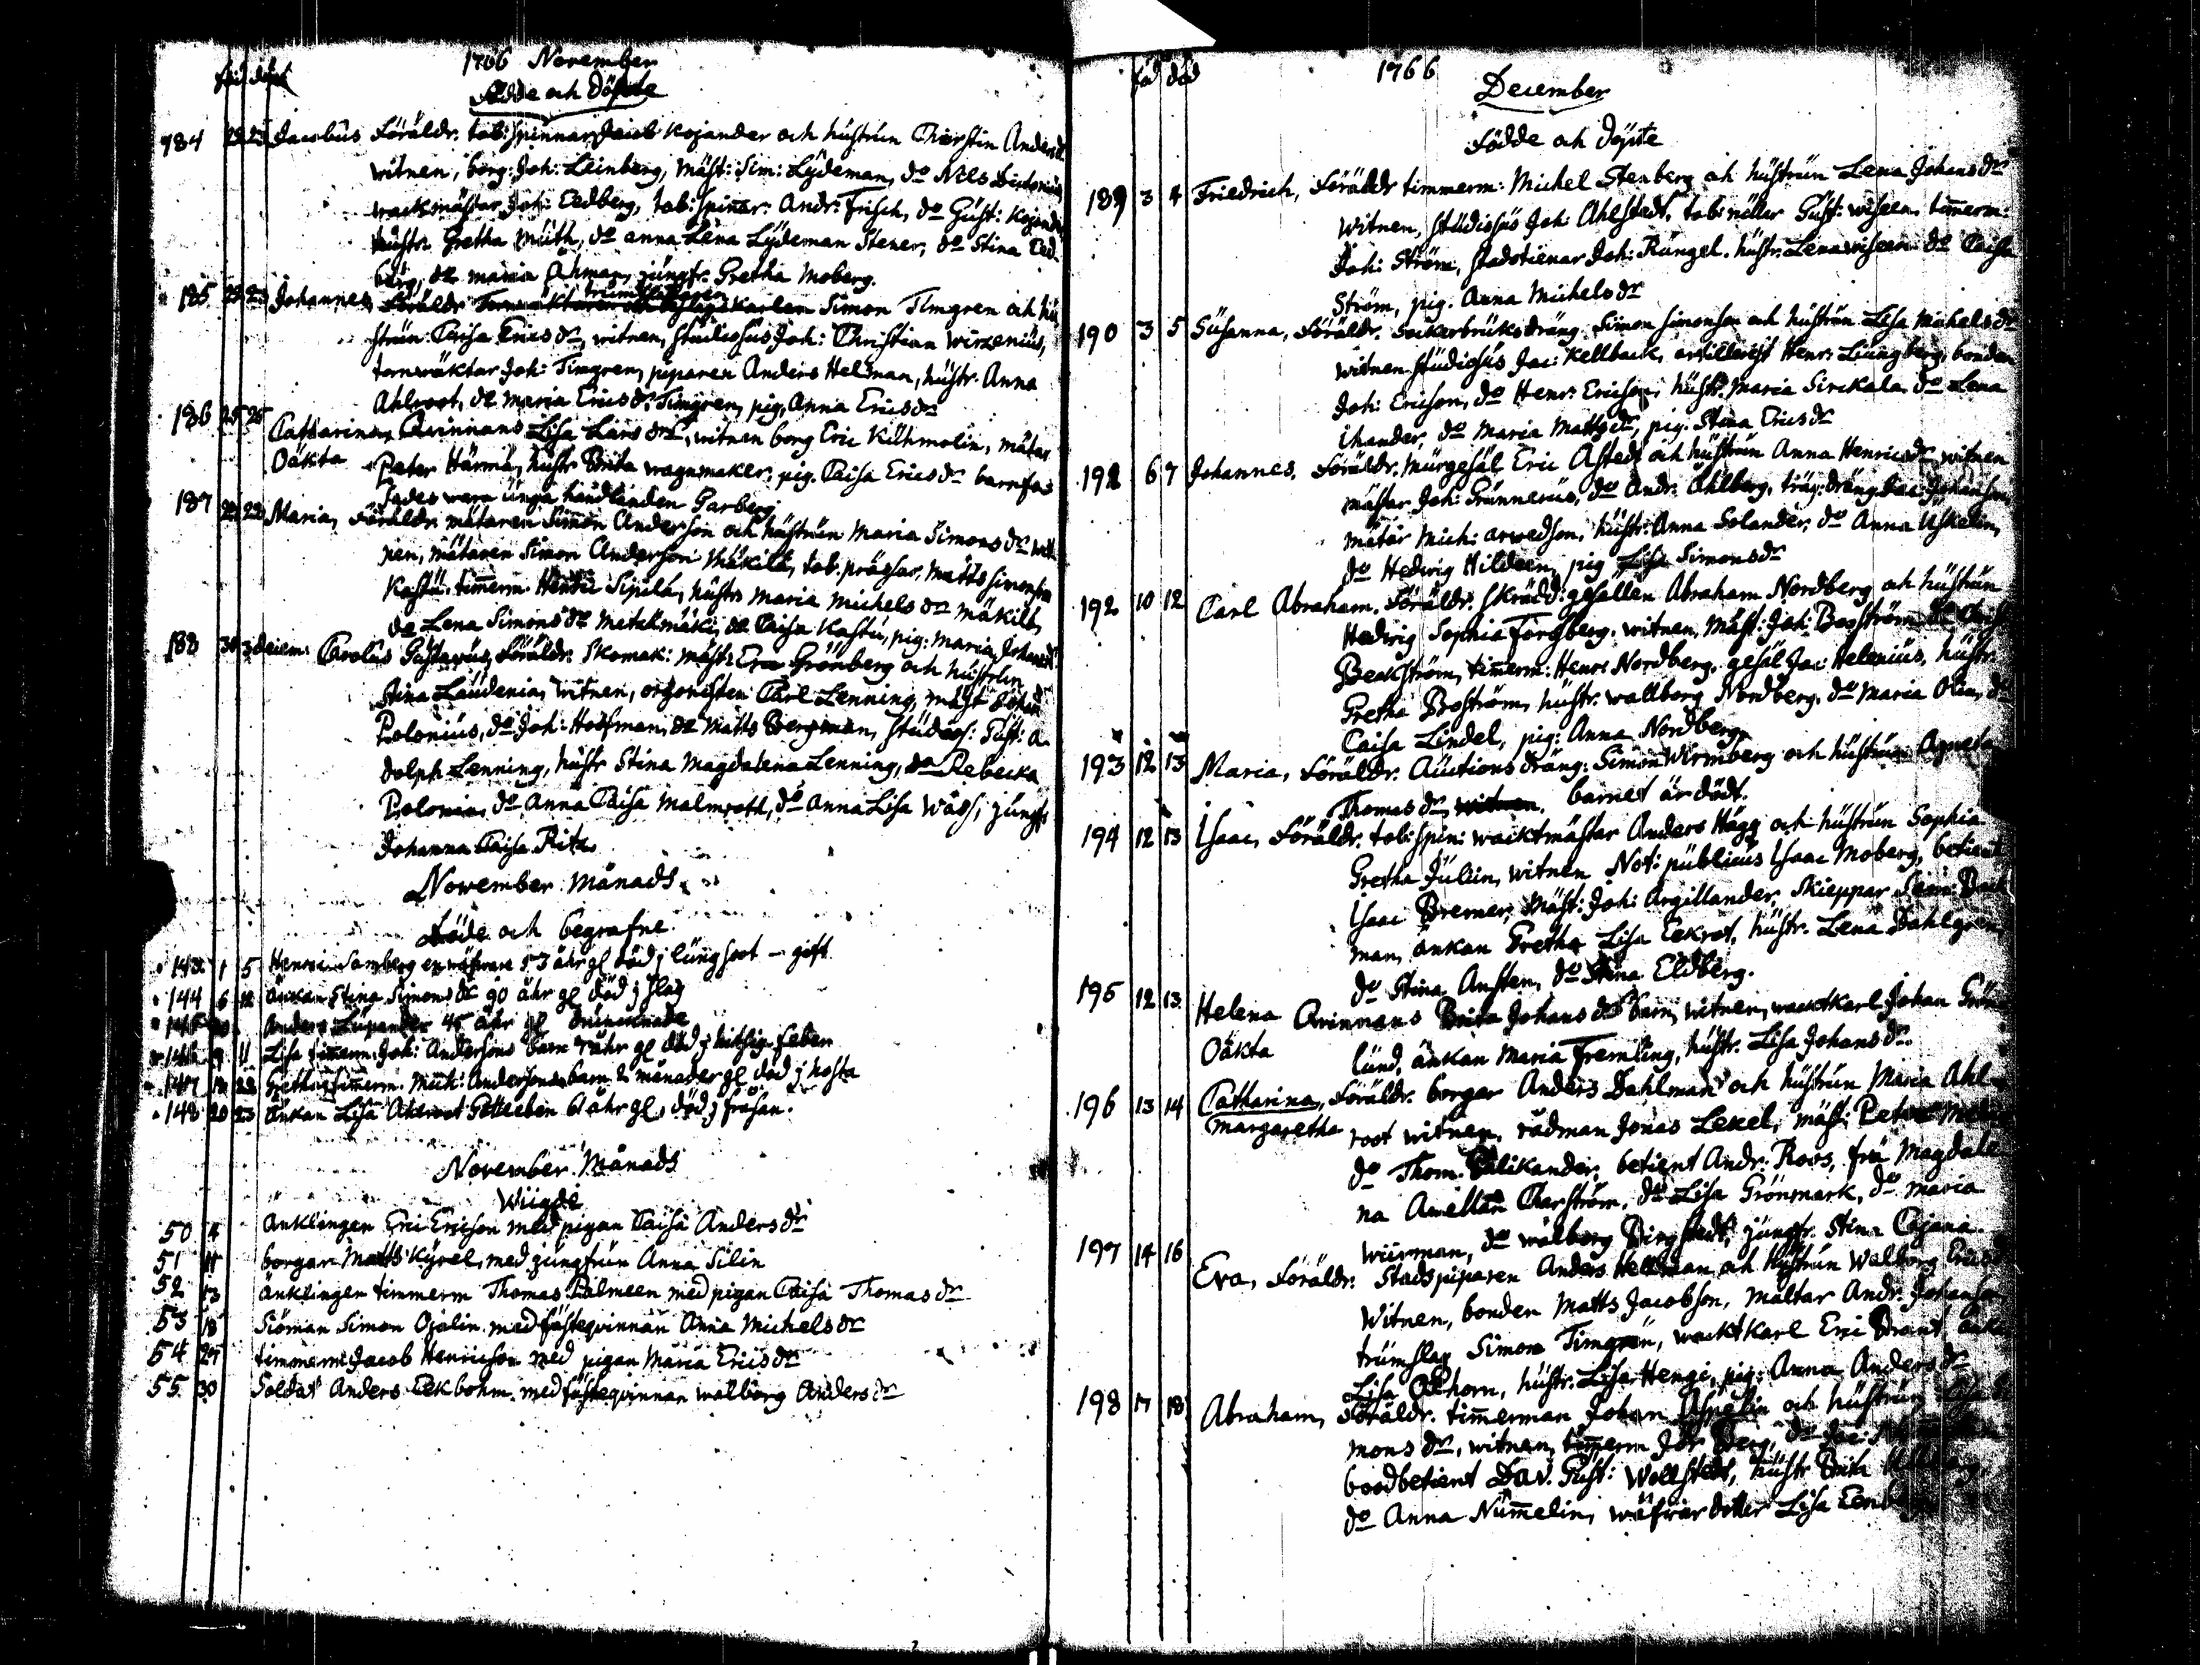 1766 November
född döpt
Födde och Döpte
184 22 23 Jacobus Föräldr. tob: spinnar Jacob Kojander och hustrun Chierstin Andersdr
witnen, borg: Joh: Leinberg, mäst: Sim: Lydeman, do Nils
wacktmästar Joh: Eedberg, tob: spinnar: Andr: Frisch, do Gust: Kojander
hustr. Gretha Muth, do anna Lena Lydeman Stener, do Stina Eed-
berg, do maria Åhman, jungfr. Gretha Moberg.
trumslagger
185 22 23 Johannes, Föräldr Simon Timgren och hu
strun Caisa Ericsdr, witnen, studiosus Joh: Christian Wirzenius,
tornwäktar Joh: Timgren, piparen Anders Helsman, hustr. Anna
Ahlroot, do maria Ericsdr Timgren, pig, Anna Ericsdr
186 25 25 Catharina, Qvinnans Lisa Larsdrs, witnen borg Eric Kilhmolin, mätar
Oäkta Peter Härmä, hustr Brita wagnmaker, pig. Caisa Ericsdr barnfa-
fades wara unga handlanden Garberg
187 22 22 Maria, Föräldr mätaren Simon Anderson och hustrun Maria Simonsdr wit-
nen, mätaren Simon Anderson Mäkilä, tob. prässar, Matts Simonson
Kastu, timmerm. Henric Sipilä, hustr maria Michelsdr mäkilä,
do Lena Simonsdr Metekmäki, do Caisa Kastu, pig: maria Johansdr
188 30 3 decem: Carolus Gustavus, Föräldr. Skomak: mäst: Eric Grönberg och hustrun
Stina Laudenia, witnen, organisten Carl Lenning, mäst Johan
Polonius, do Joh: Hoofman, do Matts Bergman, studios: Gust: A-
dolph Lenning, hustr Stina Magdalena Lenning, do Rebecka
Polonia, do Anna Caisa Malmroth, do Anna Lisa Wass, jungfr
Johanna Caisa Ritz
November Månads
Döde och begrafne.
143 1 5 Henric Samberg en wäfware 53 åhr gl död j lungsoot - gift
144 6 12 Änkan Stina Simonsdr 90 åhr gl död j slag
145 Anders Lupander 45 åhr gl drunknade
146 9 11 Lisa timmerm: Joh: Andersons barn 7 åhr gl död j hitsig feber
147 22 Gretha, timmerm. Mich: Andersons barn 2 månader gl död j hosta
148 20 23 Änkan Lisa Ahlroot Gotleben 61 åhr gl, död j frosan.
November Månads
Wiigde
50 4 Änklingen Eric Ericson med pigan Caisa Andersdr
51 11 borgar Matts Kyrel, med jungfrun Anna Silin
52 13 änklingen timmerm Thomas Palmeen med pigan Caisa Thomasdr
53 18 Siöman Simon Ojalin med fästeqvinnan Anna Michelsdr
54 27 timmerm: Jacob Henricson med pigan Maria Ericsdr
55 30 Soldat Anders Ekbohm med fästeqvinnan walborg Andersdr
1766
December
föd död
Födde och döpte
189 3 4 Friedrich, Föräldr timmerm: Michel Stenberg och hustrun Lena Johansdr
witnen, studiosus Joh: Ahlstedt, tob: ruller Gust: wiseen, timmerm:
Joh: Ström, Stadstienar Joh: Rungel, hustr: Lena wiseen do Caisa
Ström, pig. Anna Michelsdr
190 3 5 Susanna, Föräldr. Sockerbruksdräng Simon Simonson och hustrun Lisa Michelsdr
witnen studiosus Jac: Kellback, artillerist Henr: Liungberg, bonden
Joh: Ericson, do Henr: Ericson, hustr. Maria Sirckala do Lena
Ihander, do Maria Mattsdr, pig. Stina Ericsdr
191 6 7 Johannes. Föräldr. Murgesäl Eric Åstedt och hustrun Anna Henricsdr witnen
mästar Joh: Grunnerus, do Andr. Åhlberg, träg: dräng Jac: Johanson,
mätar Mich: arwedson, hustr: Anna Solander, do Anna Uskelin,
do Hedwig Hildeen, pig Lisa Simonsdr
192 10 12 Carl Abraham. Föräldr. Skrädd: gesällen Abraham Nordberg och hustrun
Hedwig Sophia Forsberg. witnen, mäst: Joh: Boström do Christ
Beckström, timmerm: Henr: Nordberg, gesäl Jac: Helenius, hustr.
Gretha Boström, hustr. wallborg Nordberg, do Maria Olin, do
Caisa Lindel, pig: Anna Nordberg
193 12 13 Maria, Föräldr. Auctions dräng: Simon Wirmberg och hustrun Agneta
Thomasdr witnen. barnet är dödt.
194 12 13 Isaac, Föräldr. tob: spin: wacktmästar Anders Hägg och hustrun Sophia
Gretha Julin, witnen Not: publicus Isaac Moberg, betient
Isaac Bremer, Mäst: Joh: Argillander, Skieppar Sim: Back
man, änkan Gretha Lisa Eekrot, hustr. Lena Dahlgren
do Stina Ansten, do Stina Eldberg.
195 12 13 Helena Qvinnans Brita Johansdrs barn, witnen, wacktkarl Johan Grön
Oäkta lund, änkan Maria Fremling, hustr. Lisa Johansdr.
196 13 14 Catharina, Föräldr. borgar Anders Dahlman och hustrun Maria Ahl-
Margaretha root witnen, rådman Jonas Lekel, mäst: Peter
do Thom. Salikander, betient Andr: Roos, fru Magdale
na Amellän Charström, do Lisa Grönmark, do maria
wiurman, do walborg Bingstedt, jungfr. Stina Cajana.
197 14 16 Eva, Föräldr. Stadspiparen Anders Hellman och hustrun Walborg Ericsdr
Witnen, bonden Matts Jacobson, Mältar Andr: Johanson
trumslag Simon Timgren, wacktkarl Eric Brant,
Lisa Ekhorn, hustr. Lisa Hengi, pig: Anna Andersdr
198 17 18 Abraham, Föräldr. timmerman Johan Aspelin och hustrun Lisa Si
monsdr, witnen, timmerm Jör Berg, do Jac:
boodbetient Dav. Gust: Wellstedt, hustr Brita
do Anna Nummelin, wäfwardotter Lisa